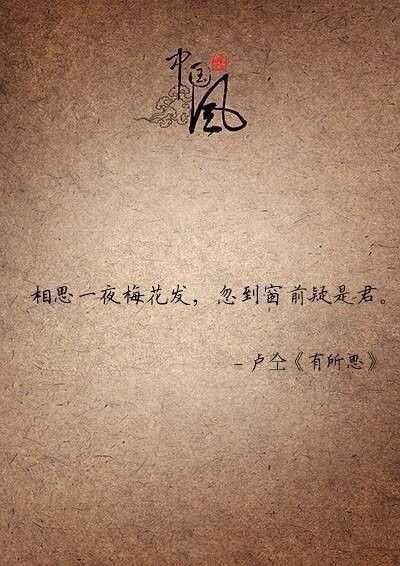 中国风
相思一夜梅花发，忽到窗前疑是君。
- 卢仝《有所思》